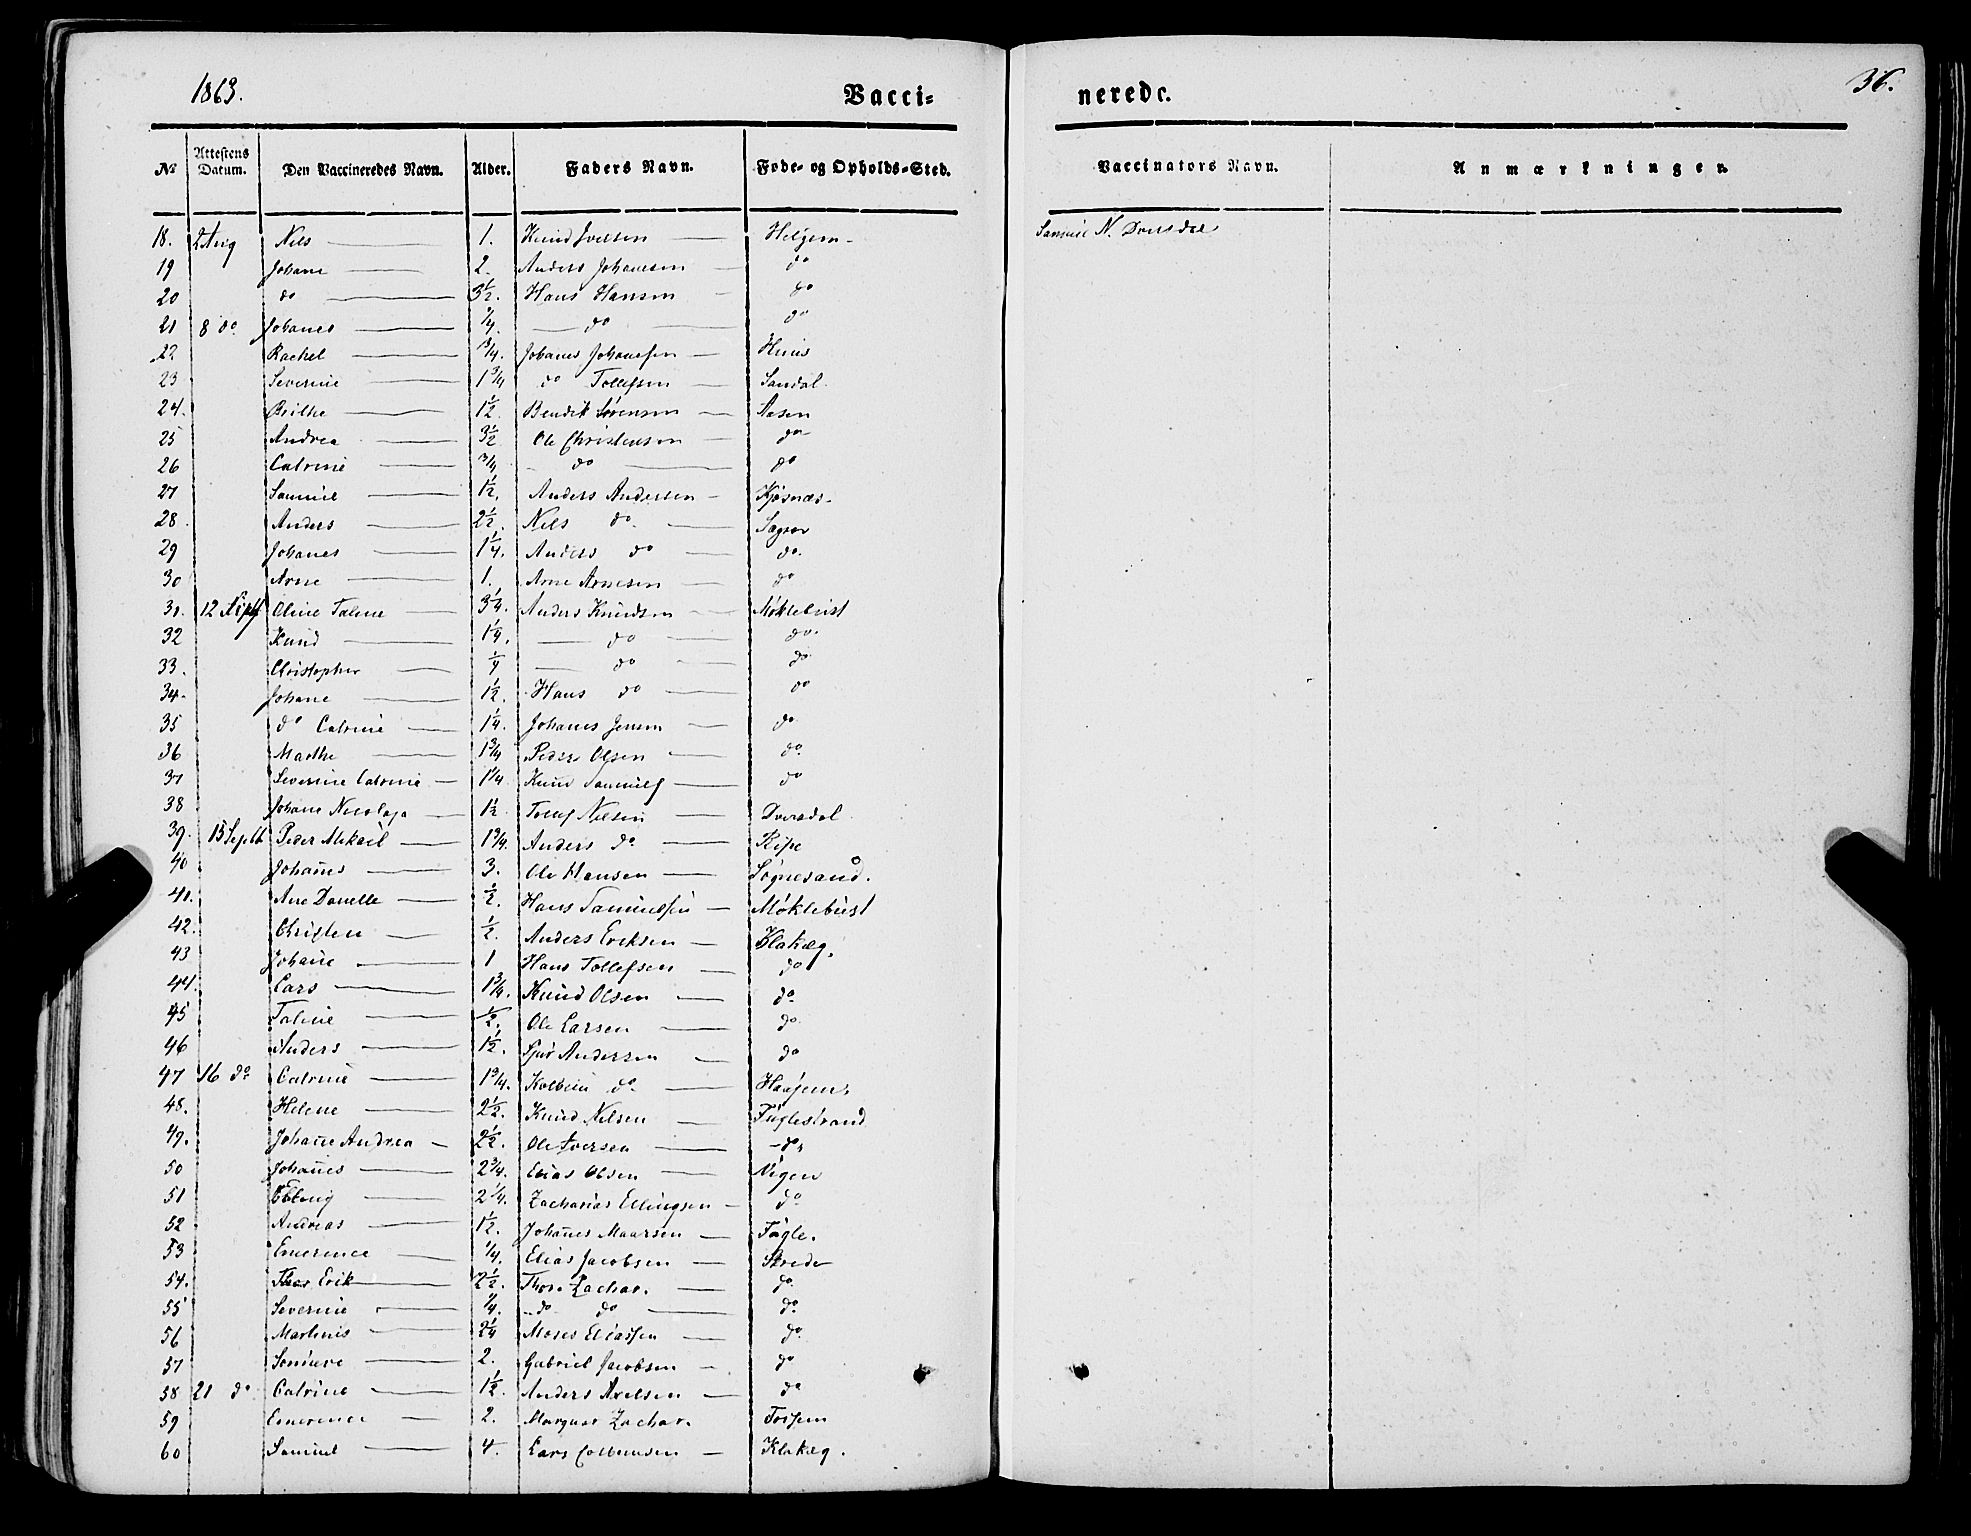 1863. Vacci= nerede. 36.
No Attestens Datum. Den Vaccineredes Navn. Alder. Faders Navn. Føde- og Opholds-Sted. Vaccinators Navn. Anmærkningen.
18. 2 Aug Nils 1. Knud Helgem Samuel N. Dvergdal
19 Johane 2. Anders Johanesen do
20 do 3½. Hans Hansen do
21 8 do Johanes do do
22 Rachel ¾. Johanes Johanesen Huus
23 Severine 1¾ do Tollefsen Sandal
24. Brithe 1½ Bendik Sørensen Aasen
25 Andrea 3½ Ole Christensen do
26 Catrine ¾ do do
27 Samuel 1½. Anders Andersen Kjøsnæs
28. Anders 2½. Nils do
29 Johanes 1¼. Anders do do
30 Arne 1. Arne Arnesen do
31. 12 Sept Oline Taline 3¼. Anders Knudsen Møklebust
32 Knud 1¼. do do
33. Christopher ¼ do do
34. Johane 1½. Hans do do
35 do Catrine 1¼. Johanes Jensen do
36 Marthe 1¾ Peder Olsen do
37 Severine Catrine 1¼ Knud Samuels do
38 Johane Nicolaja 1½ Tollef Nilsen
39. 15 Septb Peder Mikael 1¾. Anders do Ripe
40 Johanes 3. Ole Hansen Søgnesand.
41. Ane Danelle ½. Hans Samuelsen Møklebust
42. Christen ½. Anders Eriksen Klakeg.
43 Johane 1 Hans Tollefsen do
44. Lars 1¾. Knud Olsen do
45 Taline ½. Ole Larsen do
46 Anders 1½. Sjur Andersen do
47 16 do Catrine 1¾. Kolbein do
48. Helene 2½. Knud Nilsen Fuglestrand
49. Johane Andrea 2½. Ole Iversen do
50 Johanes 2¾. Elias Olsen
51 Elling 2¼. Zacharias Ellingsen do
52 Andreas 1½. Johanes
53 Emerence ¼. Elias Jacobsen Strede
54. Thor Erik 2½. Thore Zachar. do
55 Severine ¼. do do do
56 Martinus 2¼ Moses Eliassen do
57 2. Gabriel Jacobsen do
58 21 do Catrine 1½. Anders Axelsen do
59 Emerence 2. Zachar.
60 Samuel 4. Lars Colbeinsen Klakeg.